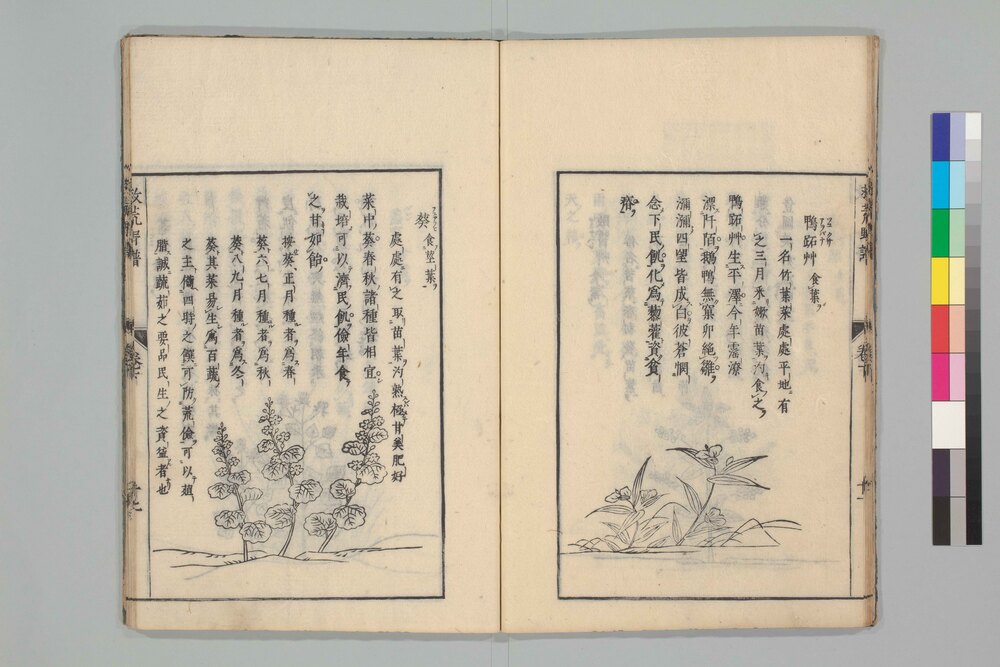 鴨跖艸 食葉
一名竹葉菜處處平地有
之三月采嫩苗葉汋食之
鴨跖艸生平澤今年霪潦
漂阡陌鵝鴨無窠卵絕雛
瀰瀰四望皆成白彼蒼憫
念下民飢化為藜藿資貧
葵 食莖葉
處處有之取苗葉汋熟極甘美肥好
菜中葵春秋諸種皆相宜
栽培可以濟民飢儉年食
之甘如飴
按葵正月種者為春
葵六七月種者為秋
葵八九月種者為冬
葵其菜易生為百蔬
之主備四時之饌可防荒儉可以葅
腊誠蔬茹之要品民生之資益者也
救荒野譜